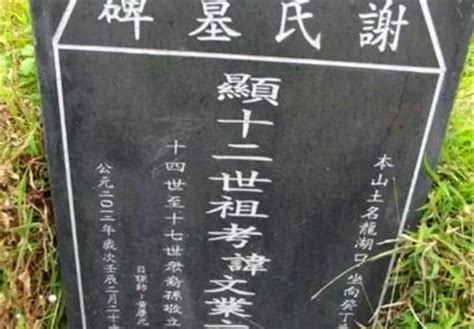 謝氏墓碑
本山土名龍湖口坐向癸丁
顯十二世祖考諱文業
十四世至十七世眾裔孫敬立
日師：黃
公元二〇一二年歲次壬辰二月二十